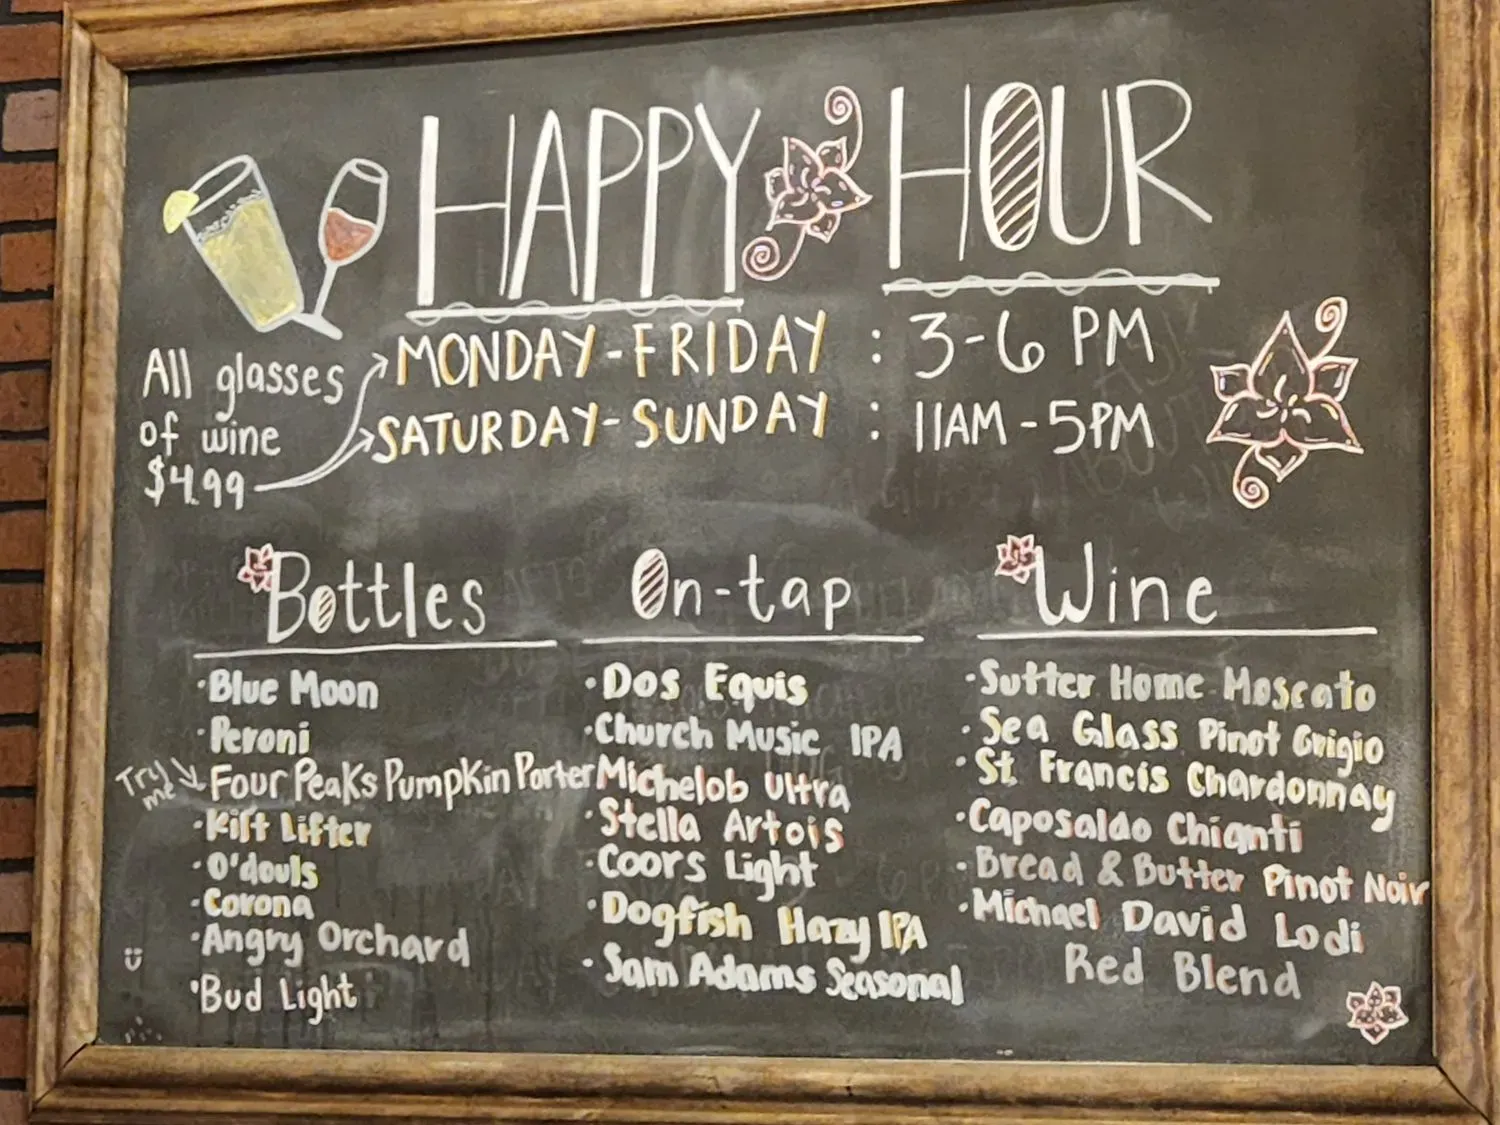 HAPPY HOUR
All glasses
of wine
$4.99
MONDAY-FRIDAY : 3-6 PM
SATURDAY-SUNDAY : 11AM-5PM
Bottles
·Blue Moon
·Peroni
Try me
Four Peaks Pumpkin Porter
·Kilt Lifter
·O'douls
·Corona
·Angry Orchard
·Bud Light
On-tap
·Dos Equis
·Church Music IPA
Michelob Ultra
·Stella Artois
·Coors Light
·Dogfish Hazy IPA
·Sam Adams Seasonal
Wine
·Sutter Home Moscato
·Sea Glass Pinot Grigio
·St. Francis Chardonnay
·Caposaldo Chianti
·Bread & Butter Pinot Noir
·Michael David Lodi
Red Blend